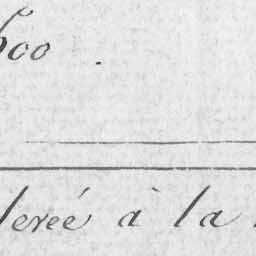 600 .
levée à la